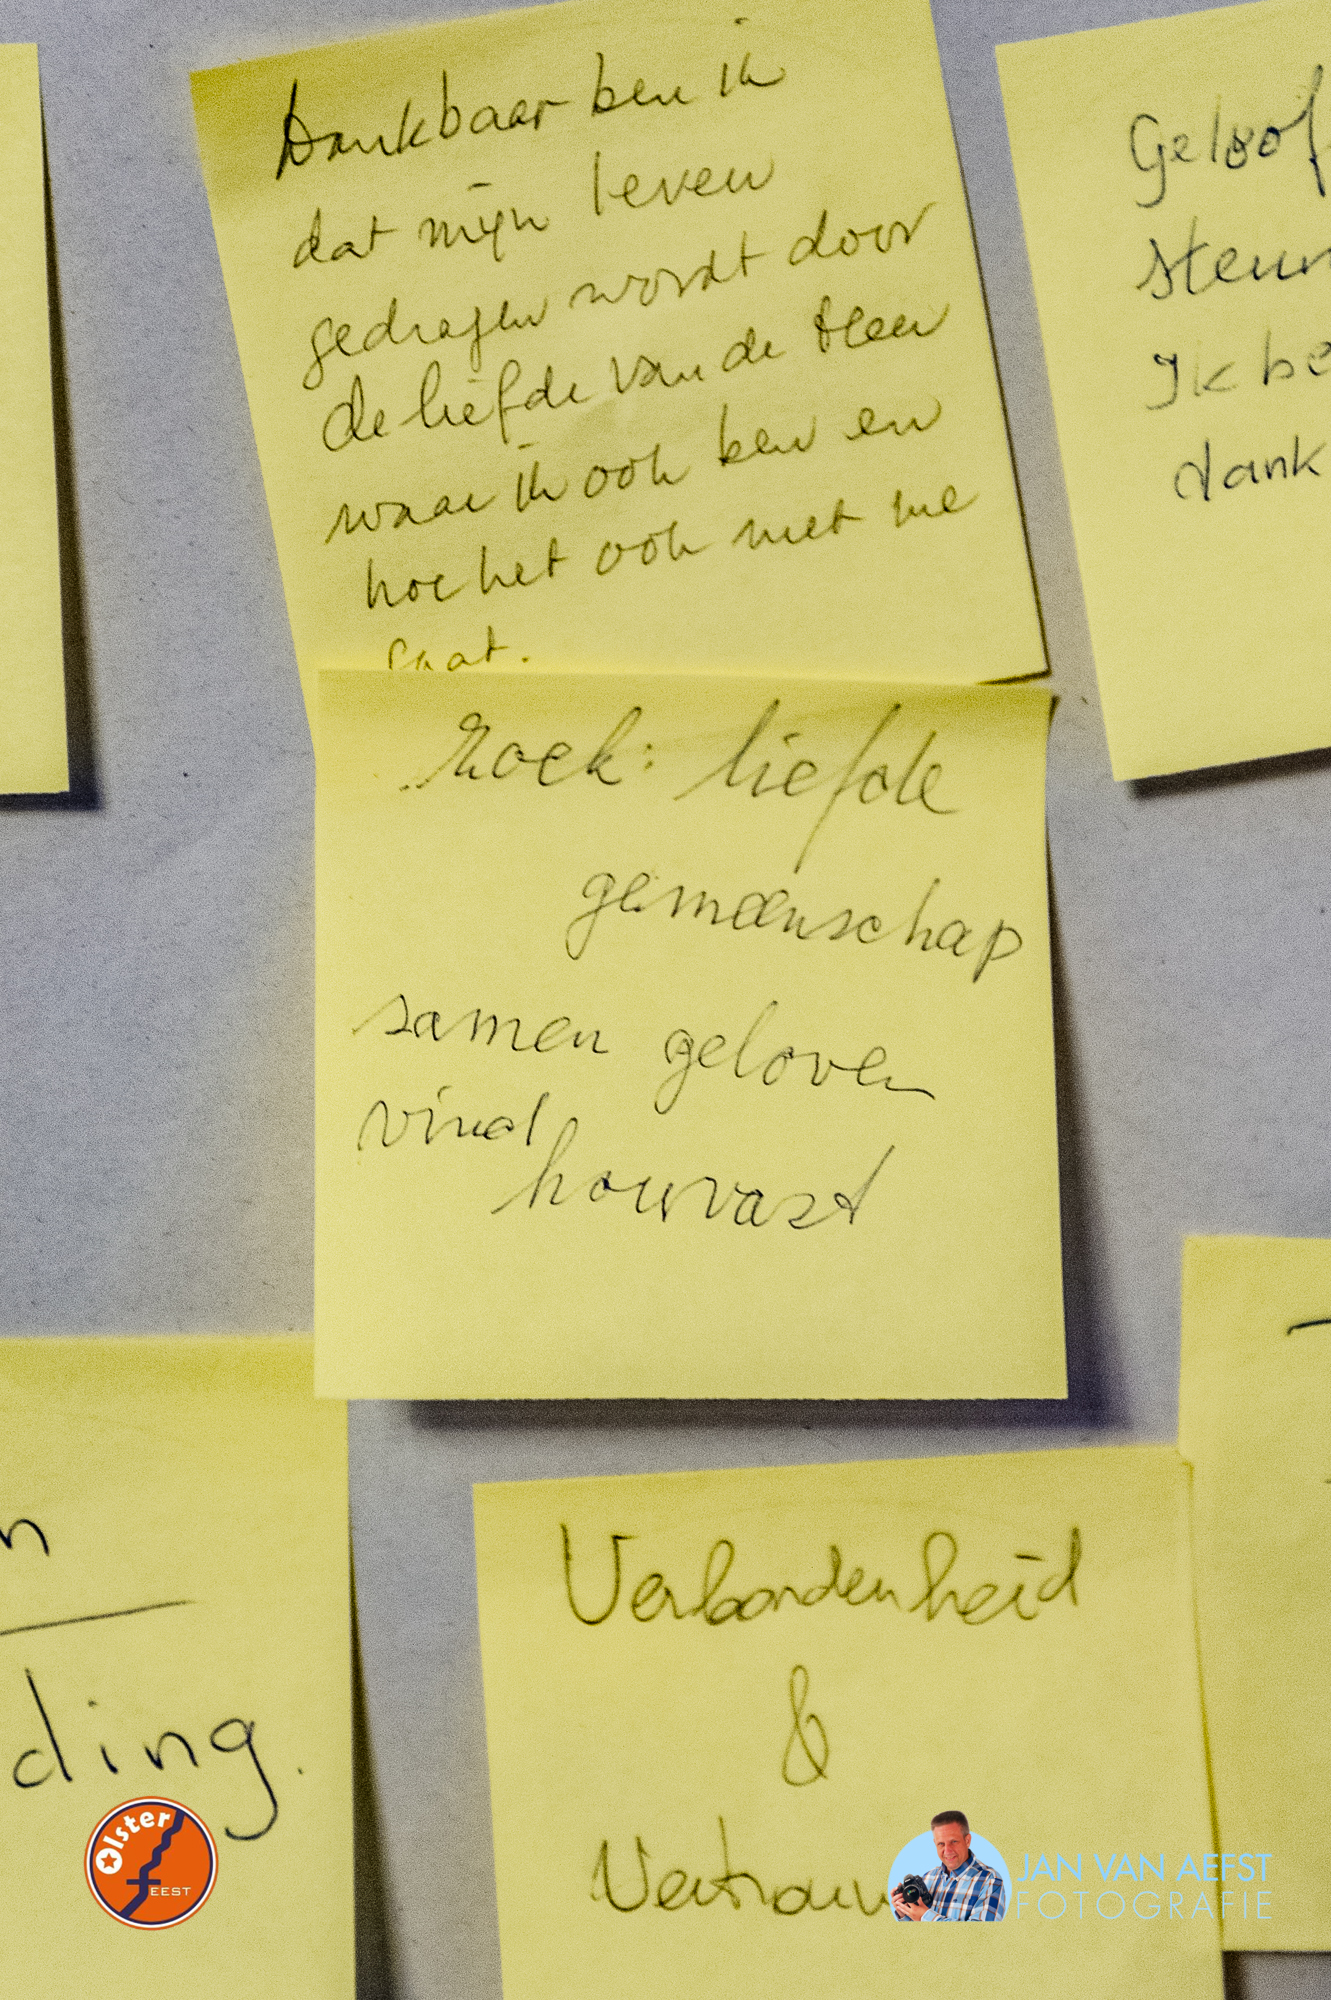 Dankbaar ben ik
dat mijn leven
gedragen wordt door
de liefde van de Heer
waar ik ook ben en
hoe het ook met me
gaat.
Geloof
steun
Ik be
dank
Zoek: liefde
gemeenschap
samen geloven
vind
houvast
n
ding.
Verbondenheid
&
Vertrouw
Olster
FEEST
JAN VAN AEFST
FOTOGRAFIE